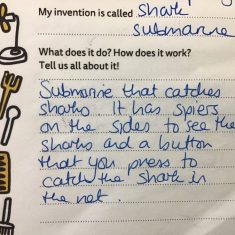 My invention is called shark
submarine
What does it do? How does it work?
Tell us all about it!
Submarine that catches
sharks It has spiers
on the sides to see the
sharks and a button
that you press to
catch the shark in
the net.